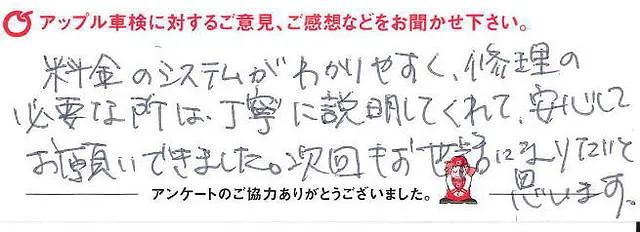 アップル車検に対するご意見、ご感想などをお聞かせ下さい。
料金のシステムがわかりやすく、修理の
必要な所は、丁寧に説明してくれて、安心して
お願いできました。次回もお世話になりたいと
思います。
アンケートのご協力ありがとうございました。